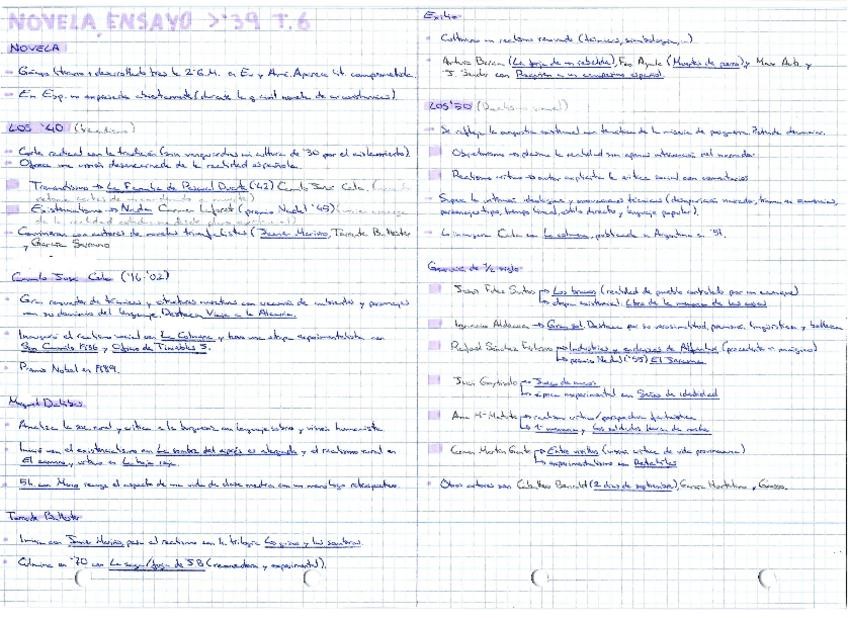 NOVELA, ENSAYO >'39 T.6
NOVELA
Género literario desarrollado tras la 2ª G.M. en Eu y Amé. Aparece lit. comprometida.
En Esp. no empieza
LOS '40
Corte radical con la tradición (sin vanguardias ni cultura de '30 por el aislamiento).
Ofrece una visión desencarnada de la realidad española.
Tremendismo → La Familia de Pascual Duarte ('42) Camilo José Cela.
Existencialismo → Nada Carmen Laforet (premio Nadal '45)
Conviven con autores de novelas triunfalistas (Javier Mariño, Torrente Ballester
y García Serrano
Camilo José Cela ('16-'02)
Gran repertorio de técnicas y estructuras narrativas con variación de ambientes y personajes
con su dominio del lenguaje. Destaca Viaje a la Alcarria.
Inauguró el realismo social con La Colmena y tuvo una etapa experimentalista con
San Camilo 1936 y Oficio de Tinieblas 5.
Premio Nobel en 1989.
Miguel Delibes
Analiza la soc. rural y critica a la burguesa con lenguaje sobrio y visión humanista
Inició con el existencialismo en La sombra del ciprés es alargada y el realismo social en
El camino, y critica en La hoja roja.
5h con Mario recoge el aspecto de una vida de clase media con un monólogo retrospectivo.
Torrente Ballester
Inicia con Javier Mariño, pasa al realismo con la trilogía Los gozos y las sombras.
Culmina en '70 con La saga/fuga de JB (renovadora y experimental).
Exilio
Cultivaron un realismo renovado (técnicas, simbología,...)
Arturo Barea (La forja de un rebelde), Fco Ayala (Muertes de perro) y Max Aub y
J. Sender con Requiem x un campesino español.
LOS '50 (Realismo social)
Se refleja la angustia existencial con temática de la miseria de posguerra. Pretende denunciar.
Objetivismo → plasma la realidad sin apenas intervención del narrador.
Realismo crítico → autor explicita la crítica social con comentarios
tiempo lineal, estilo directo y lenguaje popular).
Lo inaugura Cela en La colmena, publicada en Argentina en '51.
Generación de ½ siglo
Jesús Fdez Santos → Los bravos (realidad de pueblo controlado por un cacique)
↳ etapa existencial. Libro de la memoria de las cosas
Ignacio Aldecoa → Gran sol. Destaca por su verosimilitud,
Rafael Sánchez Ferlosio → Industrias y andanzas de Alfanhuí
↳ premio Nadal ('55) El Jarama
Juan Goytisolo → Juego de manos
↳ época experimental con Señas de identidad
Ana Mª Matute → realismo crítico/perspectiva fantástica
↳ 1ª memoria y Los soldados lloran de noche
Carmen Martín Gaite → Entre visillos (visión crítica de vida provinciana)
↳ experimentalismo con Retahílas
Otros autores son Caballero Bonald (2 días de septiembre), García Hortelano,